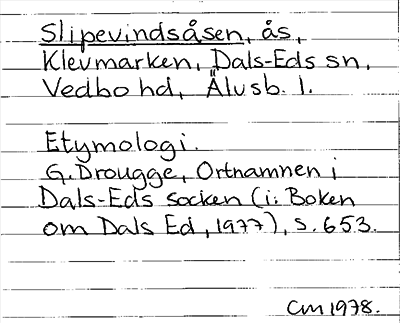 Slipevindsåsen, ås,
Klevmarken, Dals-Eds sn,
Vedbo hd, Älvsb. l.
Etymologi.
G. Drougge, Ortnamnen i
Dals-Eds socken (i: Boken
om Dals Ed, 1977), s. 653.
CM 1978.